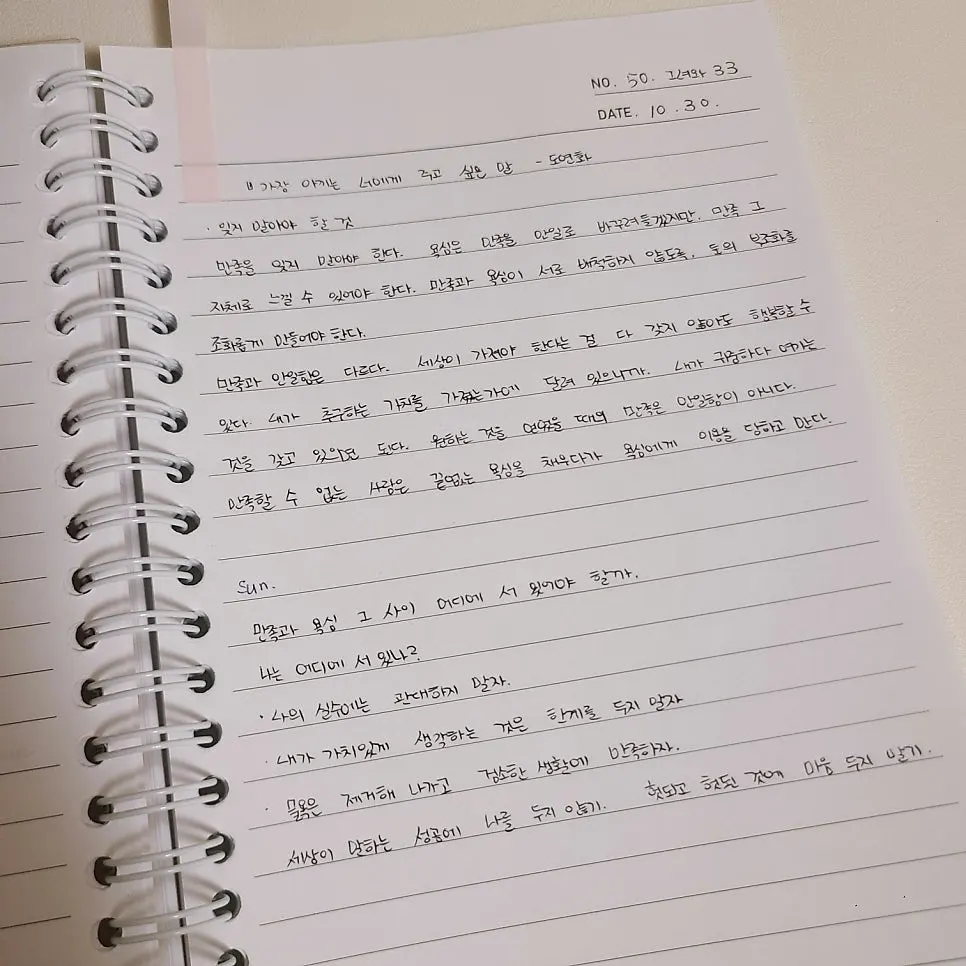 NO. 50. 그녀와 33
DATE. 10. 30.
" 가장 아끼는 너에게 주고 싶은 말 - 도연화
· 잊지 말아야 할 것
만족을 잊지 말아야 한다. 욕심은 만족을 안일로 바꾸려들겠지만. 만족 그
자체로 느낄 수 있어야 한다. 만족과 욕심이 서로 배척하지 않도록. 둘의 부조화를
조화롭게 만들어야 한다.
만족과 안일함은 다르다. 세상이 가져야 한다는 걸 다 갖지 않아도 행복할 수
있다. 내가 추구하는 가치를 가졌는가에 달려 있으니까. 내가 귀중하다 여기는
것을 갖고 있으면 된다. 원하는 것을 얻었을 때의 만족은 안일함이 아니다.
만족할 수 없는 사람은 끝없는 욕심을 채우다가 욕심에게 이용을 당하고 만다.
Sun.
만족과 욕심 그 사이 어디에 서 있어야 할까.
나는 어디에 서 있나?
· 나의 실수에는 관대하지 말자.
· 내가 가치있게 생각하는 것은 한계를 두지 말자
· 물욕은 제거해 나가고 검소한 생활에 만족하자.
세상이 말하는 성공에 나를 두지 않기. 헛되고 헛된 것에 마음 두지 말기.